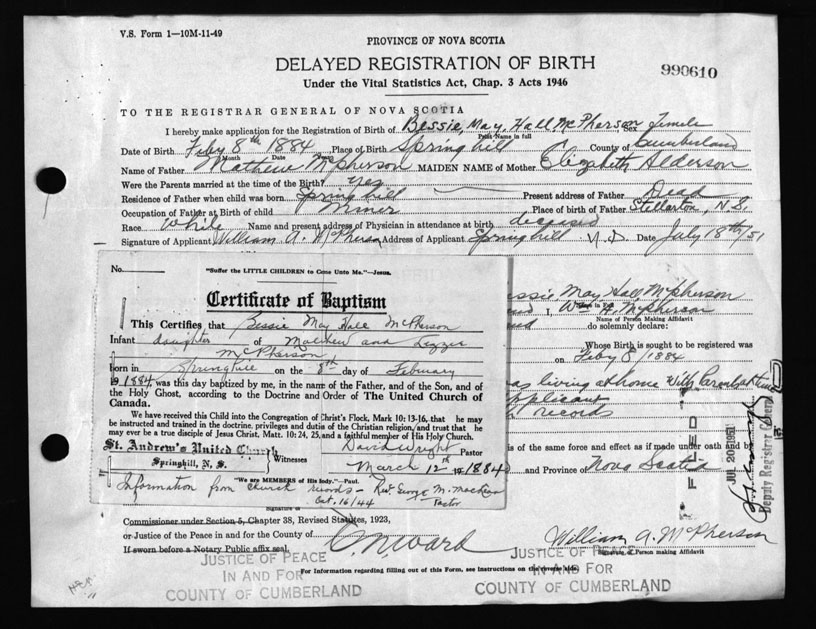 V.S. Form 1—10M-11-49
PROVINCE OF NOVA SCOTIA
DELAYED REGISTRATION OF BIRTH
990610
Under the Vital Statistics Act, Chap. 3 Acts 1946
TO THE REGISTRAR GENERAL OF NOVA SCOTIA
I hereby make application for the Registration of Birth of Bessie May Hall McPherson Sex Female
Print Name in full
Date of Birth Feby 8th 1884 Place of Birth Springhill County of Cumberland
Month Date
Name of Father Mathew McPherson MAIDEN NAME of Mother Elizabeth Alderson
Were the Parents married at the time of the Birth? yes
Residence of Father when child was born Springhill Present address of Father Dead
Occupation of Father at Birth of child Miner Place of birth of Father Stellarton, N.S.
Race White Name and present address of Physician in attendance at birth deceased
Signature of Applicant William A. McPherson Address of Applicant Springhill N.S. Date July 18th/51
No. "Suffer the LITTLE CHILDREN to Come Unto Me."—Jesus.
Certificate of Baptism
This Certifies that Bessie May Hall McPherson
Infant daughter of Mathew and Lizzie
McPherson
born in Springhill on the 8th day of February
1884 was this day baptized by me, in the name of the Father, and of the Son, and of the
Holy Ghost, according to the Doctrine and Order of The United Church of
Canada.
We have received this Child into the Congregation of Christ's Flock, Mark 10: 13-16, that he may
be instructed and trained in the doctrine, privileges and duties of the Christian religion, and trust that he
may ever be a true disciple of Jesus Christ, Matt. 10: 24, 25, and a faithful member of His Holy Church.
St. Andrew's United Church
Springhill, N. S.
Witnesses
David Wright Pastor
March 12th 1884
"We are MEMBERS of His body."—Paul.
Information from church records — Rev. George M. MacLean
Oct. 16/44 Pastor
Bessie May Hall McPherson
I, Wm A. McPherson
Name of Person Making Affidavit
do solemnly declare:
Whose Birth is sought to be registered was
on Feby 8/1884
was living at home with Parents at time
applicant
records
is of the same force and effect as if made under oath and by
and Province of Nova Scotia
FILED
JUL 20 1951
Deputy Registrar General
Commissioner under Section 5, Chapter 38, Revised Statutes, 1923,
or Justice of the Peace in and for the County of
If sworn before a Notary Public affix seal.
William A. McPherson
Signature of Person Making Affidavit
JUSTICE OF PEACE
IN AND FOR
COUNTY OF CUMBERLAND
For Information regarding filling out of this Form, see instructions on the reverse side.
JUSTICE OF PEACE
IN AND FOR
COUNTY OF CUMBERLAND